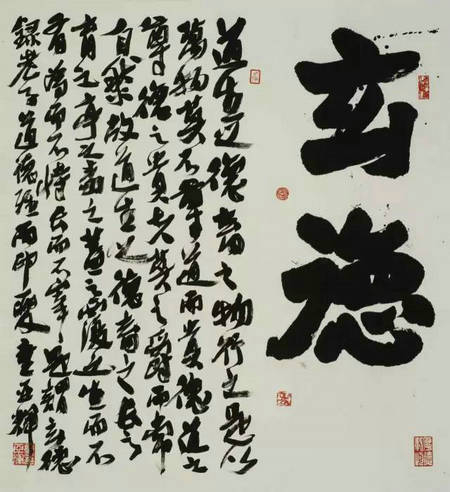 玄德
道生之德畜之物行之是以
萬物莫不尊道而貴德道之
尊德之貴夫莫之爵而常
自然故道生之德畜之長之
育之亭之毒之蓋之覆之生而不
有為而不恃長而不宰是謂玄德
錄老子道德經